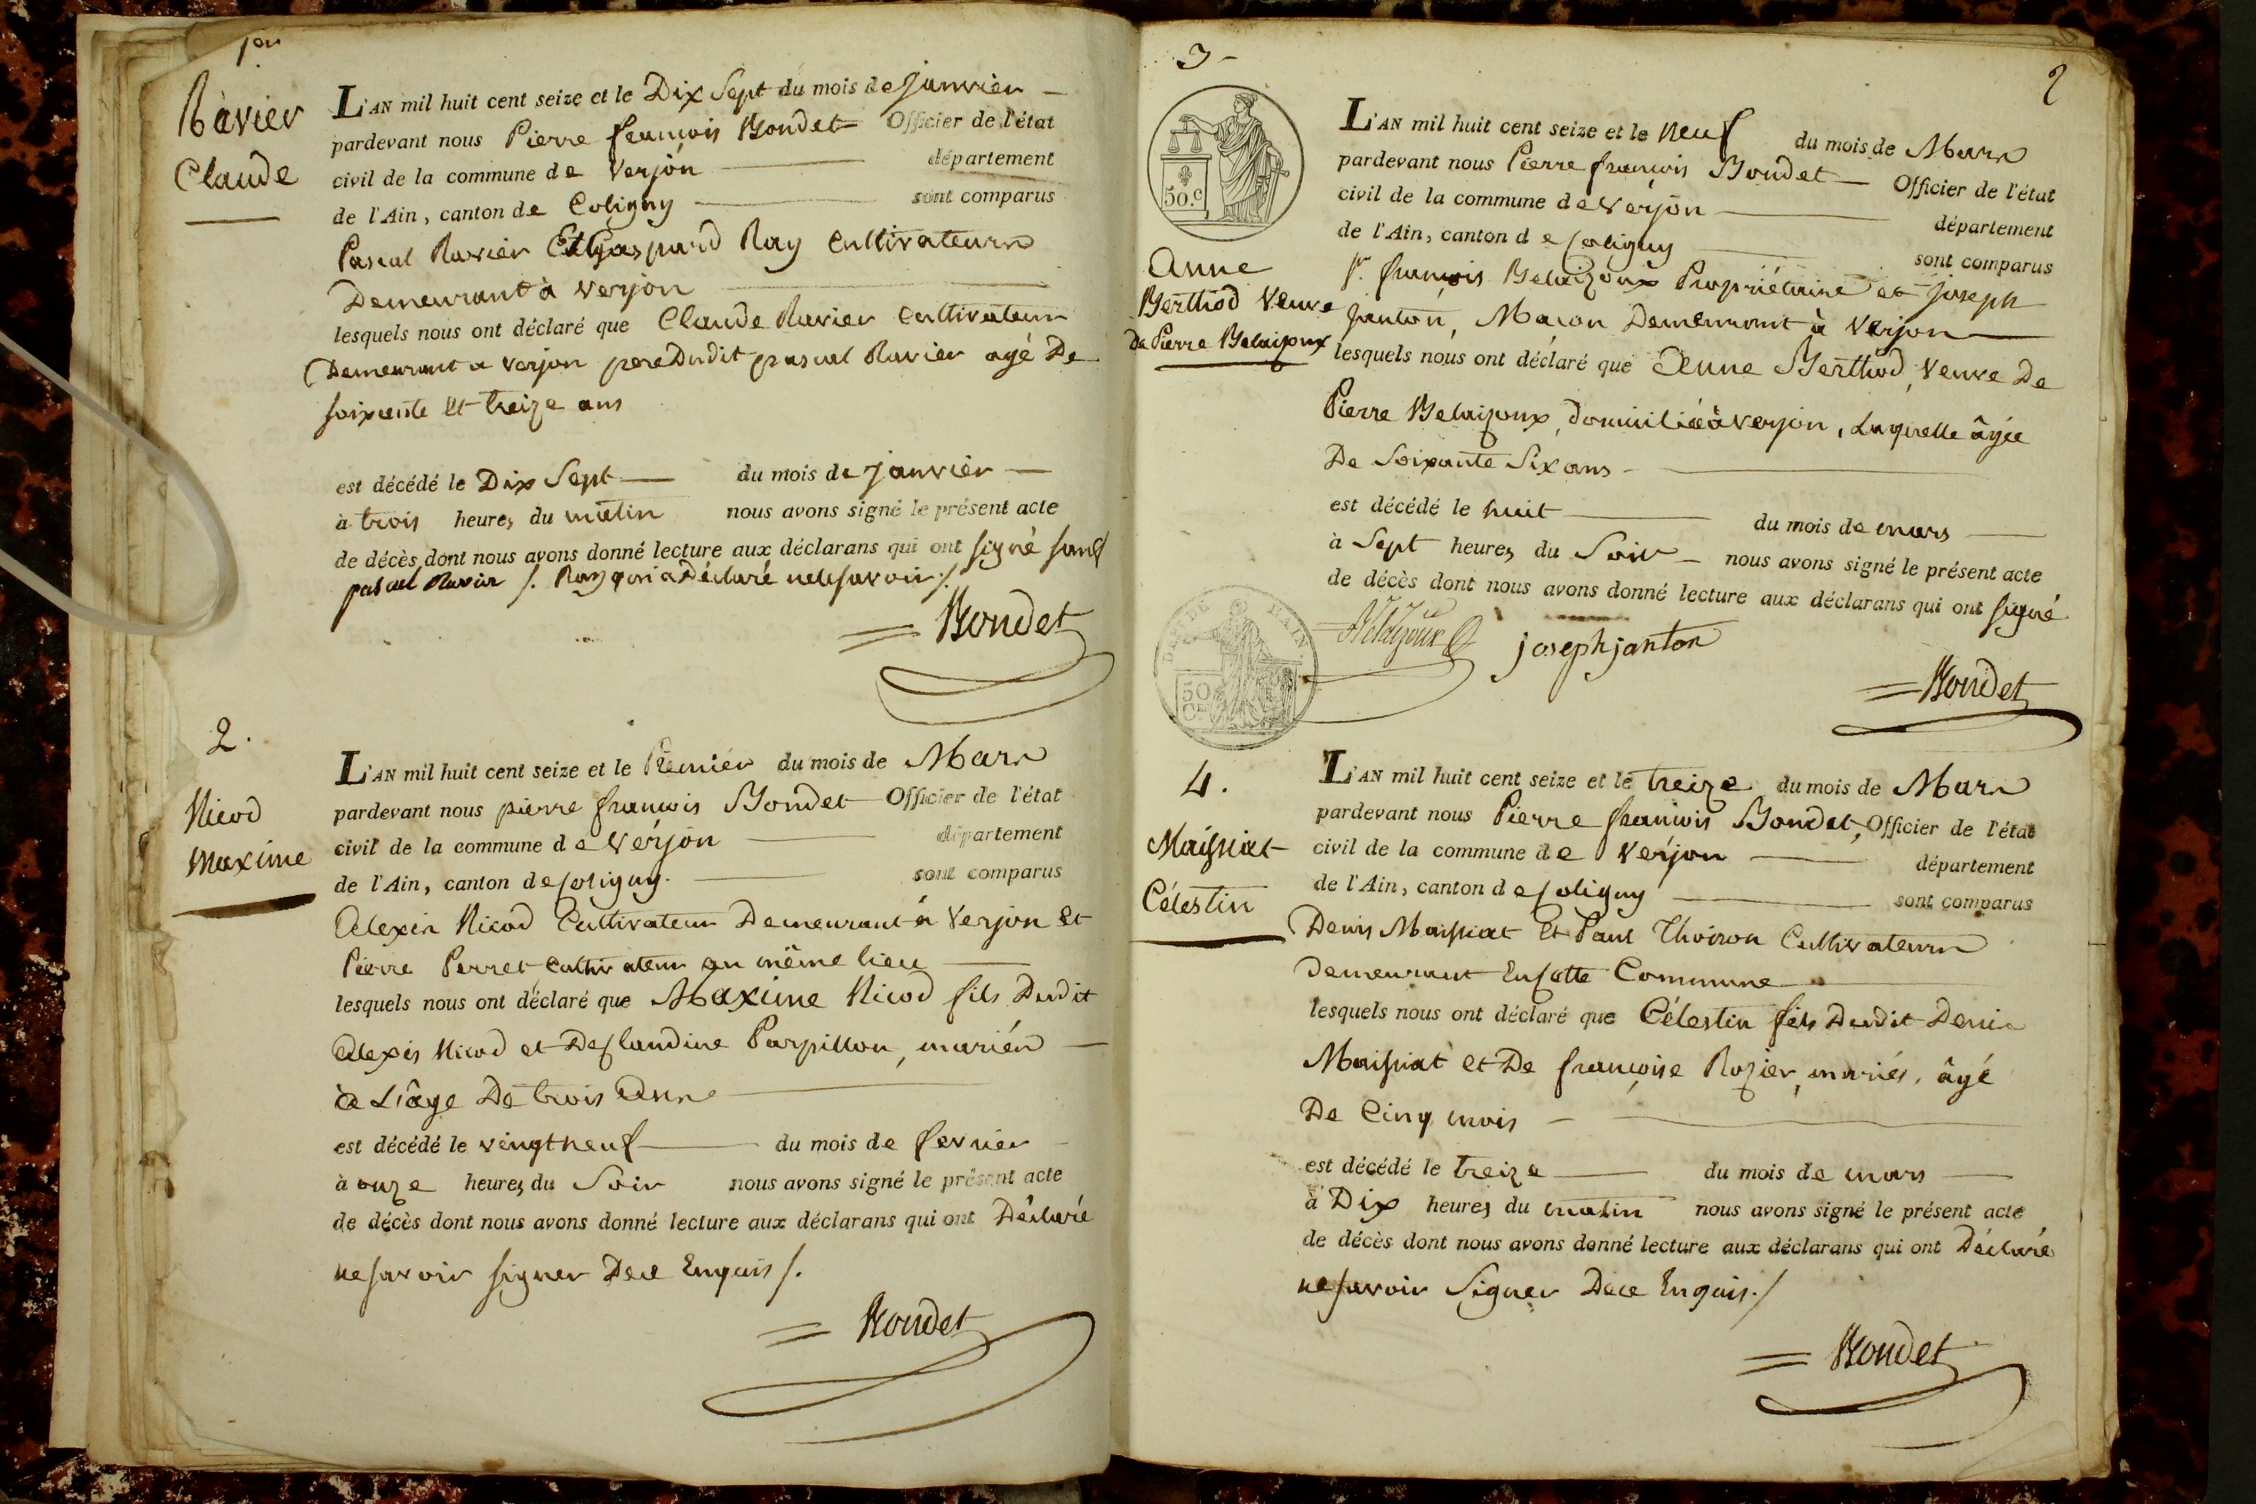 1er
Ravier
Claude
L'AN mil huit cent seize et le Dix Sept du mois de janvier
pardevant nous Pierre françois Bondet Officier de l'état
civil de la commune de Verjon département
de l'Ain, canton de Coligny sont comparus
Pascal Ravier Et Gaspard Ray Cultivateurs
Demeurant à Verjon
lesquels nous ont déclaré que Claude Ravier Cultivateur
Demeurant a Verjon pere Dudit pascal Ravier agé De
soixante Et treize ans
est décédé le Dix Sept du mois de janvier
à trois heures du matin nous avons signé le présent acte
de décès dont nous avons donné lecture aux déclarans qui ont signé sauf
pascal Ravier /. Ray qui a Déclaré ne le savoir /.
Bondet
2.
Nicod
Maxime
L'AN mil huit cent seize et le Premier du mois de Mars
pardevant nous pierre françois Bondet Officier de l'état
civil de la commune de Verjon département
de l'Ain, canton de Coligny. sont comparus
Alexis Nicod Cultivateur Demeurant à Verjon Et
Pierre Perret cultivateur au même lieu
lesquels nous ont déclaré que Maxime Nicod fils Dudit
Alexis Nicod et De Claudine Parpillon, mariés
à L'âge De trois Anns
est décédé le vingt neuf du mois de fevrier
à onze heures du Soir nous avons signé le présent acte
de décès dont nous avons donné lecture aux déclarans qui ont Déclaré
ne savoir signer De ce Enquis /.
Bondet
3
2
50.c
Anne
Berthod Veuve
De Pierre Belaizoux
L'AN mil huit cent seize et le neuf du mois de Mars
pardevant nous Pierre françois Bondet Officier de l'état
civil de la commune de Verjon département
de l'Ain, canton de Coligny sont comparus
Sr. françois Belaizoux Propriétaire et joseph
janton, Maçon Demeurant à Verjon
lesquels nous ont déclaré que Anne Berthod, Veuve De
Pierre Belaizoux, Domiciliée à Verjon, Laquelle âgée
De Soixante Six ans
est décédé le huit du mois de mars
à Sept heures du Soir nous avons signé le présent acte
de décès dont nous avons donné lecture aux déclarans qui ont signé
DEP. DE L'AIN.
50
C.
Belaizoux joseph janton
Bondet
4.
Maissiat
Célestin
L'AN mil huit cent seize et le treize du mois de Mars
pardevant nous Pierre françois Bondet, Officier de l'état
civil de la commune de Verjon département
de l'Ain, canton de Coligny sont comparus
Denis Maissiat Et Paul Thoiron Cultivateurs
Demeurant En Cette Commune
lesquels nous ont déclaré que Célestin fils Dudit Denis
Maissiat et De françoise Rozier, mariés, âgé
De Cinq mois
est décédé le treize du mois de mars
à Dix heures du matin nous avons signé le présent acte
de décès dont nous avons donné lecture aux déclarans qui ont Déclaré
ne savoir Signer De ce Enquis./
Bondet